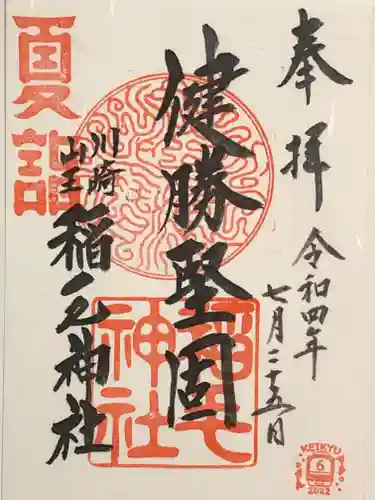 奉拝
令和四年
七月二十五日
健勝堅固
川崎
山王
稲毛神社
夏詣
稲毛
神社
KEIKYU
6
2022